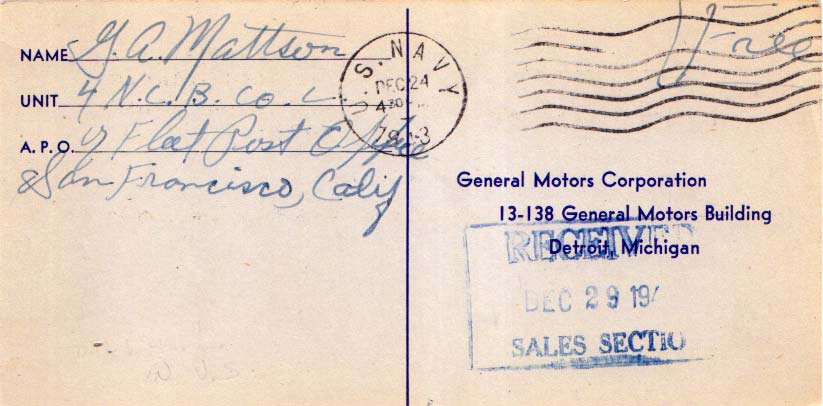 NAME G. A. Mattson
UNIT 4 N.C.B. Co. L
A.P.O. % Fleet Post Office
San Francisco, Calif
U.S. NAVY
DEC 24
4 30
Free
General Motors Corporation
13-138 General Motors Building
Detroit, Michigan
RECEIVED
DEC 29 194
SALES SECTIO